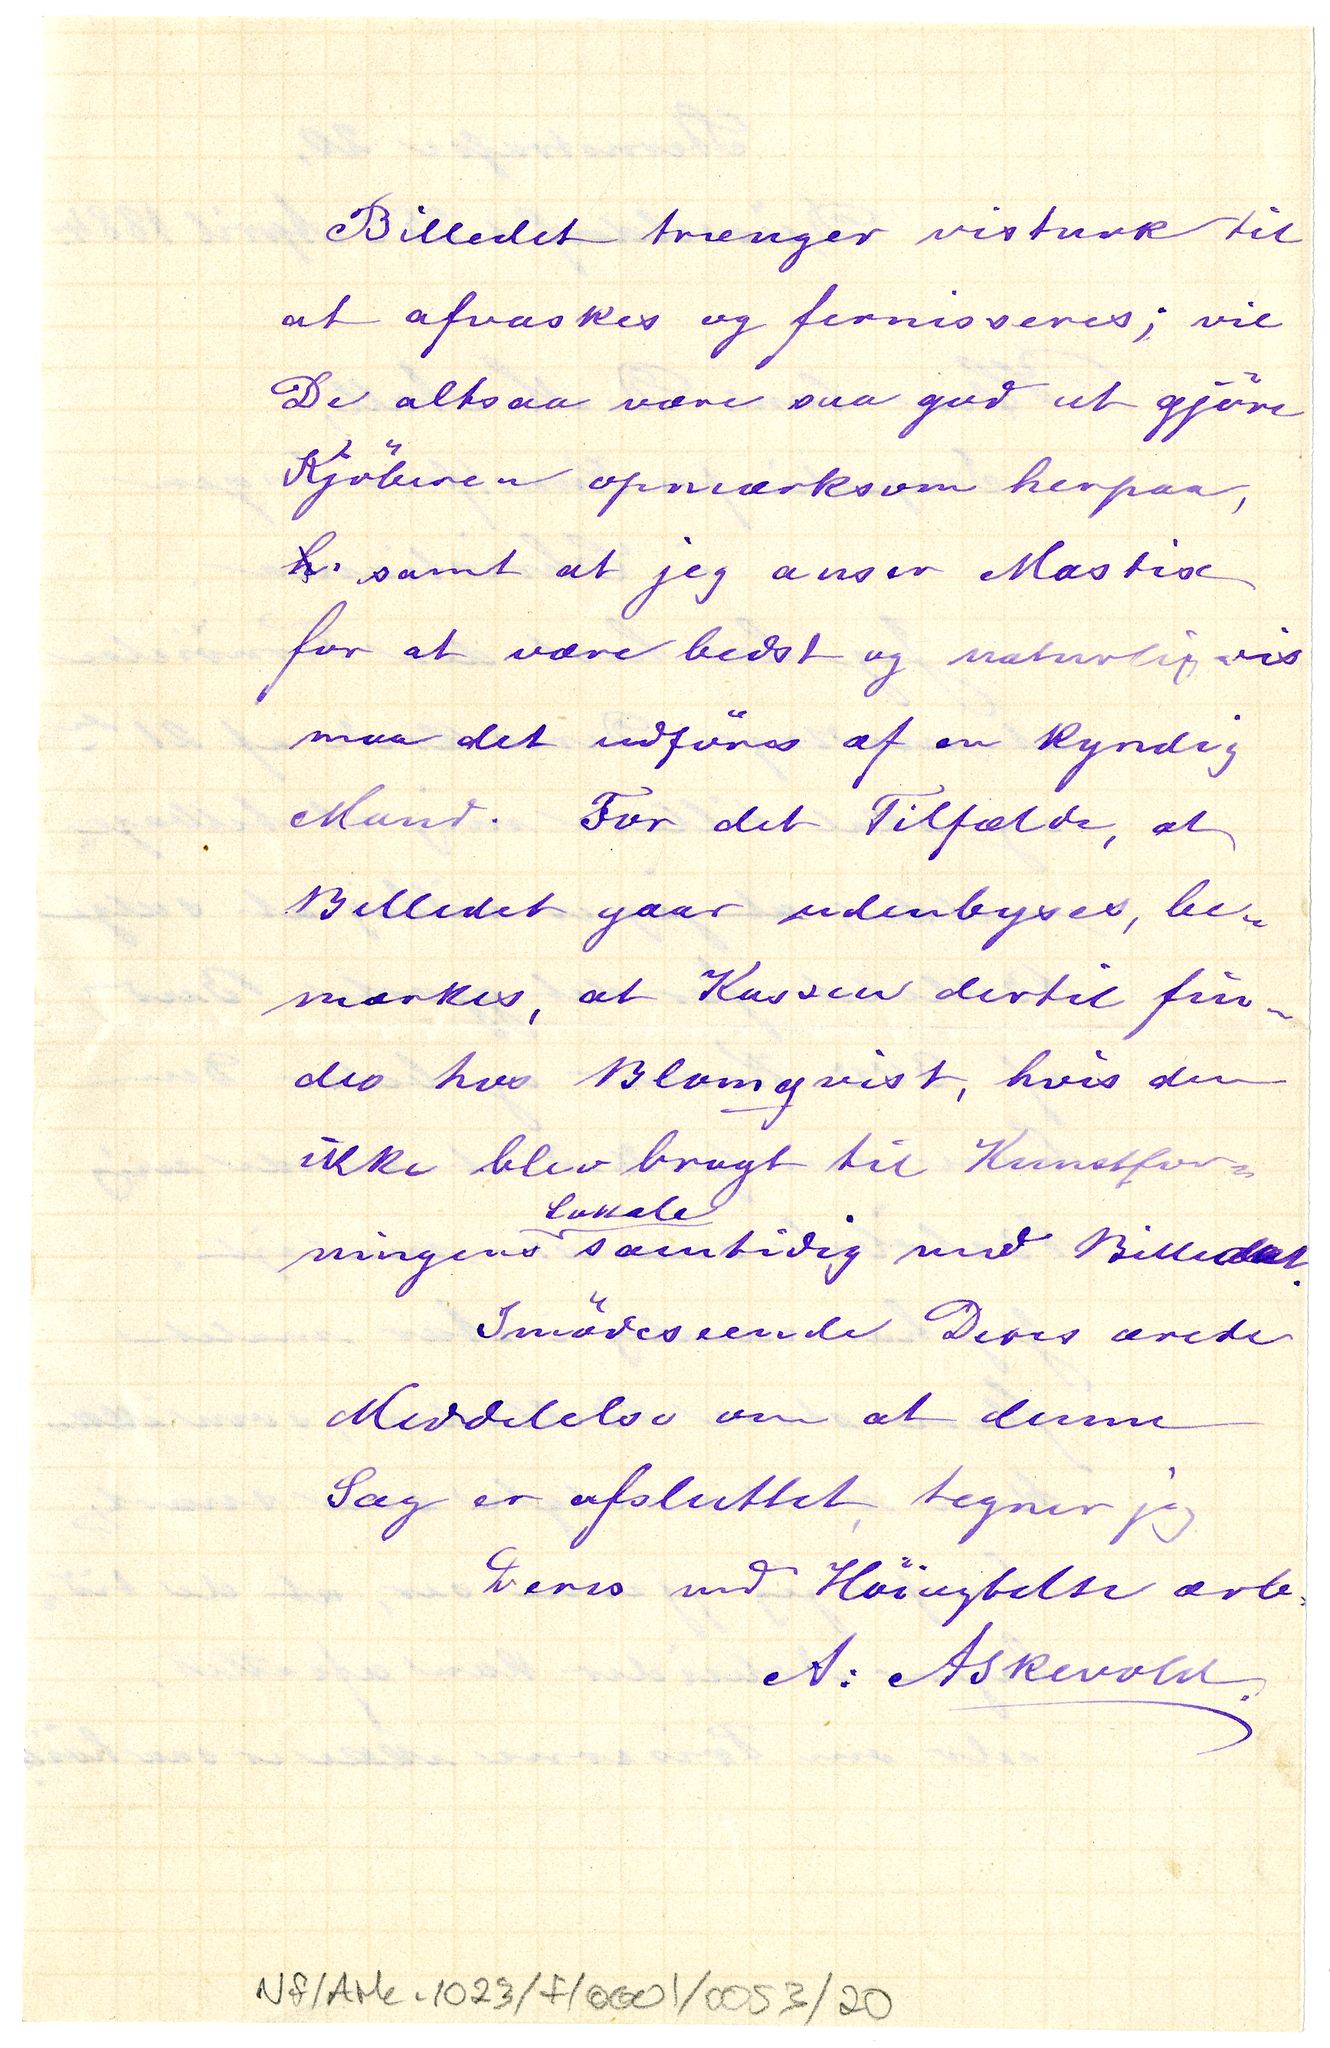 Billedet trænger vistnok til
at afvaskes og fernisseres; vil
De altsaa være saa god at gjöre
Kjöberen opmærksom herpaa,
samt at jeg anser Mastix
for at være bedst og naturligvis
maa det udföres af en kyndig
Mand. For det Tilfælde, at
Billedet gaar udenbyes, be-
mærkes, at Kassen dertil fin-
des hos Blomqvist, hvis den
ikke blev bragt til Kunstfor-
Lokale
ningens samtidig med Billedet.
Imödeseende Deres ærede
Meddelelse om at denne
Sag er afsluttet, tegner jeg
Deres med Höiagtelse ærb.
A: Askevold.
NF/Ark.1023/F/0001/0053/20